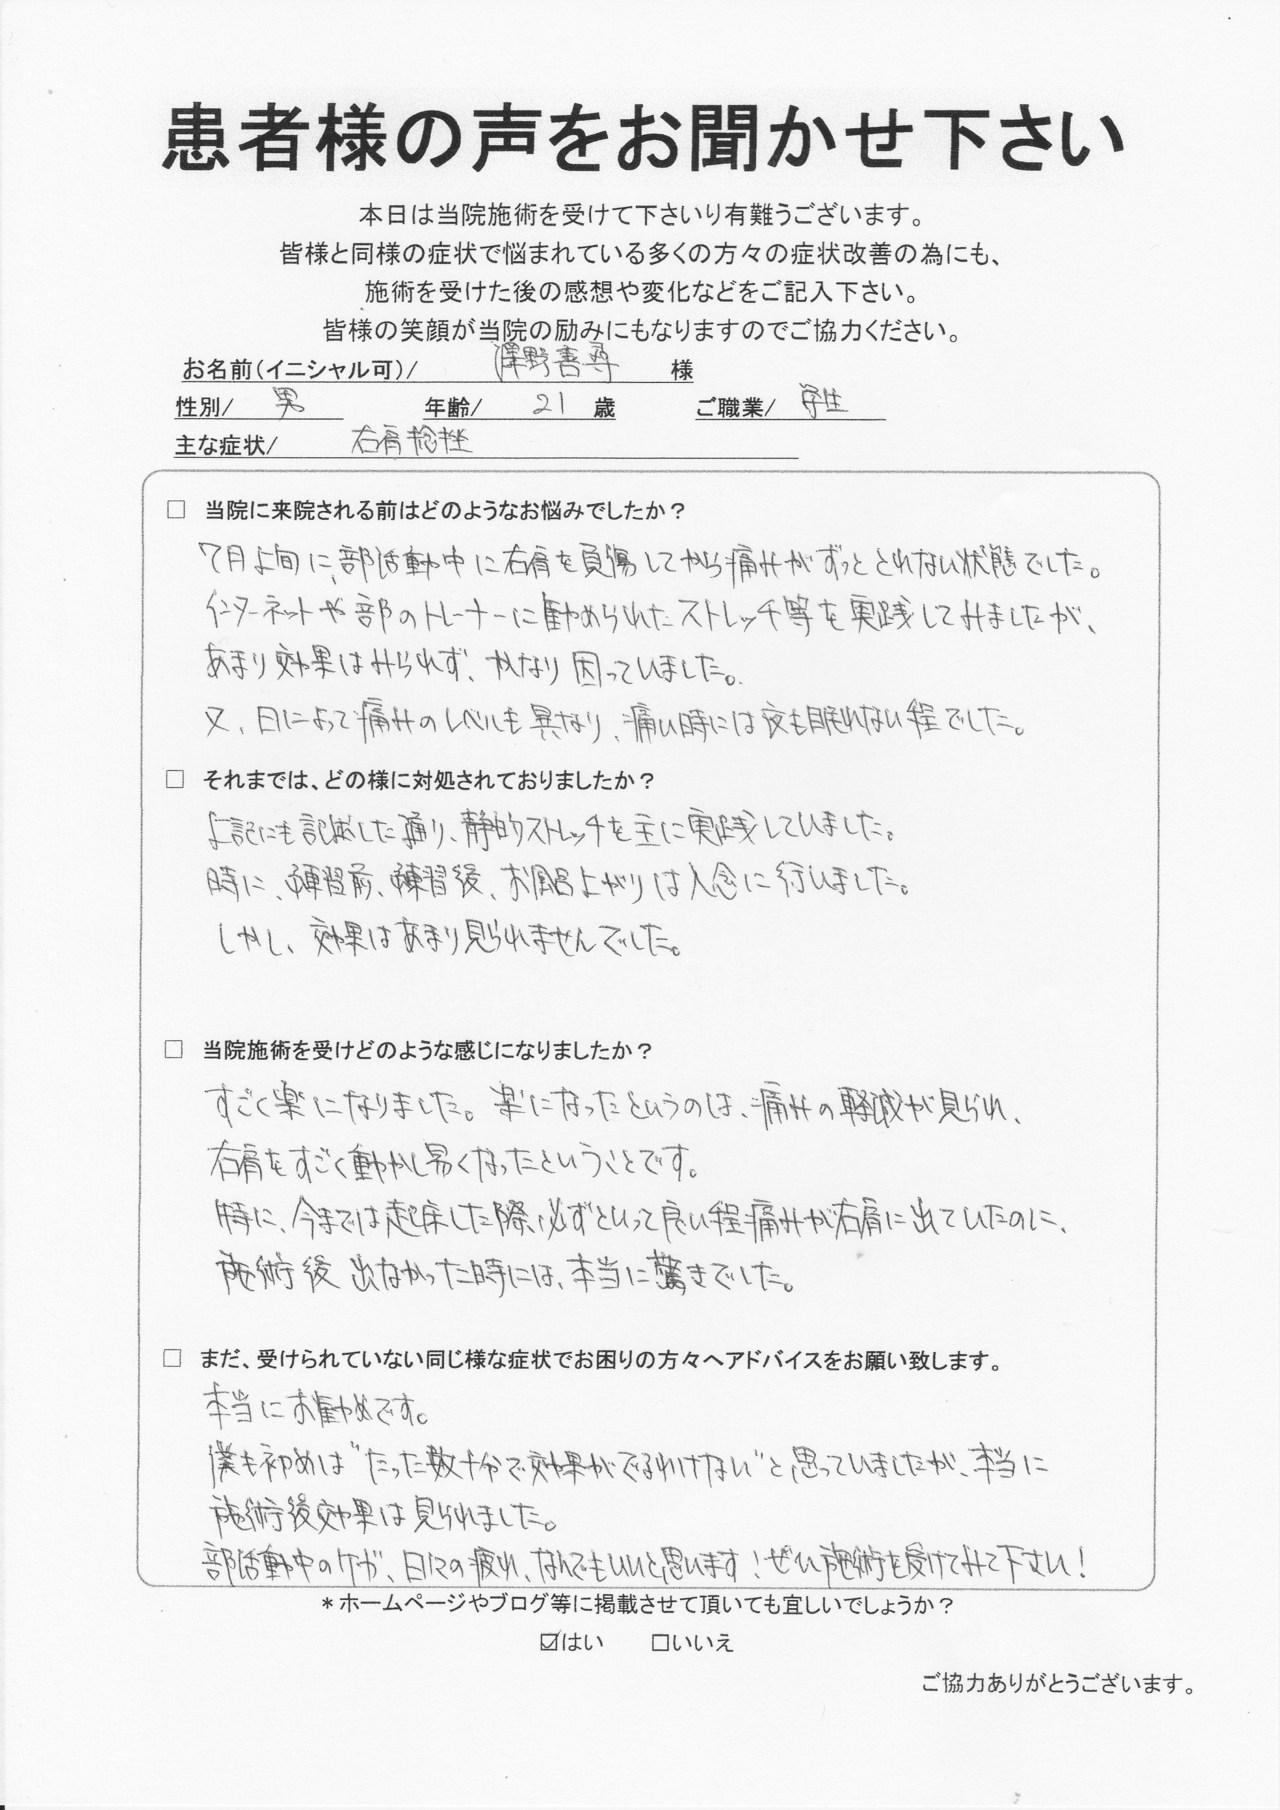 患者様の声をお聞かせ下さい
本日は当院施術を受けて下さいり有難うございます。
皆様と同様の症状で悩まれている多くの方々の症状改善の為にも、
施術を受けた後の感想や変化などをご記入下さい。
皆様の笑顔が当院の励みにもなりますのでご協力ください。
お名前(イニシャル可)/ 澤野善尋 様
性別/ 男 年齢/ 21 歳 ご職業/ 学生
主な症状/ 右肩捻挫
□ 当院に来院される前はどのようなお悩みでしたか？
7月上旬に、部活動中に右肩を負傷してから痛みがずっととれない状態でした。
インターネットや部のトレーナーに勧められたストレッチ等を実践してみましたが、
あまり効果はみられず、かなり困っていました。
又、日によって痛みのレベルも異なり、痛い時には夜も眠れない程でした。
□ それまでは、どの様に対処されておりましたか？
上記にも記述した通り、静的ストレッチを主に実践していました。
時に、練習前、練習後、お風呂上がりは入念に行いました。
しかし、効果はあまり見られませんでした。
□ 当院施術を受けどのような感じになりましたか？
すごく楽になりました。楽になったというのは、痛みの軽減が見られ、
右肩をすごく動かし易くなったということです。
特に、今までは起床した際、必ずといって良い程痛みが右肩に出ていたのに、
施術後出なかった時には、本当に驚きでした。
□ まだ、受けられていない同じ様な症状でお困りの方々へアドバイスをお願い致します。
本当にお勧めです。
僕も初めは"たった数十分で効果がでるわけない"と思っていましたが、本当に
施術後効果は見られました。
部活動中のケガ、日々の疲れ、なんでもいいと思います！ぜひ施術を受けてみて下さい！
＊ホームページやブログ等に掲載させて頂いても宜しいでしょうか？
☑はい □いいえ
ご協力ありがとうございます。